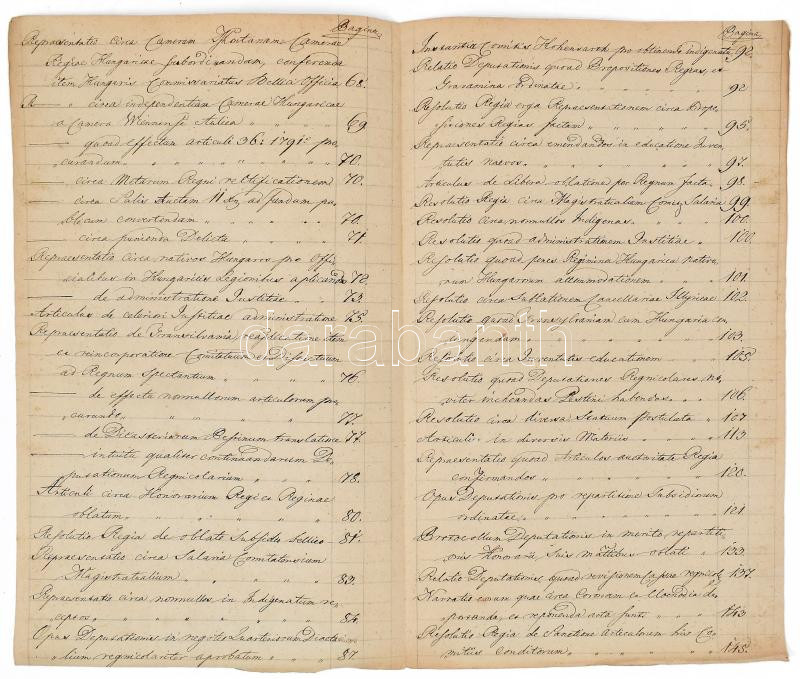 Pagina
Repraesentatio circa Cameram Camerae
Regiae Hungaricae subordinandam, conferenda
item Hungaris Commissariatus Bellici Officia 68.
circa independentiam Camerae Hungaricae
a Camera Viennensi Aulica " " 69.
quoad Effectum articuli 36: 1791 pro
curandum " " " " " " 70.
circa Metarum Regni rectificationem 70.
circa Salis Auctam ad fundum pu
blicum convertendam " " " 70.
circa punienda Delicta " " " 71.
Repraesentatio circa nativos Hungaros pro Offi
cialibus in Hungaricis Legionibus applicandos 72.
de administratione Justitiae " " 73.
Articulus de celeriori Justitiae administratione 75.
Repraesentatio de Transilvania item
ex reincorporatione Comitatuum et Districtuum
ad Regnum Spectantium " " " 76.
de effectu nonnullorum articulorum pro
curando " " " " " 77.
de Dicasteriorum translatione 77.
intuitu qualiter continuandarum De
putationum Regnicolarium " " 78.
Articuli circa Honorarium Regi et Reginae
oblatum " " " " " 80.
Resolutio Regia de oblato Subsidio bellico 81.
Repraesentatio circa Salaria Comitatensium
Magistratualium " " " " 83.
Repraesentatio circa nonnullos in Indigenatum re
ceptos " " " " " 84.
Opus Deputationis in
lium regnicolariter aprobatum " " 87.
Pagina
Instantia Comitis Hohenwarth pro obtinendo indigenatu 92.
Relatio Deputationis quoad Propositiones Regias, et
Gravamina Ordinatae " " " 92
Resolutio Regia erga Repraesentationem circa Propo
sitiones Regias factam " " " " 95.
Repraesentatio circa emendandos in educatione Juven
tutis naevos " " " " 97.
Articulus de Libera oblatione per Regnum facta 98.
Resolutio Regia circa Magistratualium Salaria 99
Resolutio circa nonnullos Indigenas " " 100.
Resolutio quoad administrationem Justitiae " 100.
Resolutio quoad penes Regimina Hungarica nativo
rum Hungarorum " " 101.
Resolutio circa Sublationem Cancellariae Illyricae 102.
Resolutio quoad Transylvaniam cum Hungaria con
jungendam " " " " 103.
Resolutio circa Juventutis educationem " " 105.
Resolutio quoad Deputationes Regnicolares no
viter inchoandas Pestini habendas " " 106.
Resolutio circa diversa Statuum Postulata " 107
Articuli in diversis Materiis " " " 113
Repraesentatio quoad Articulos auctoritate Regia
confirmandos " " " " 120.
Opus Deputationis pro repartitione Subsidiorum
ordinatae " " " " " 121.
Protocollum Deputationis in merito repartiti
onis Honorarii Suis Mattibus oblati " 133.
Relatio Deputationis, quoad 137.
Narratio eorum quae circa Coronam ex Clenodia de
portanda, et reponenda acta sunt " " 143
Resolutio Regia de Sanctione articulorum his Co
mitiis conditorum " " " " 145.
darabanth